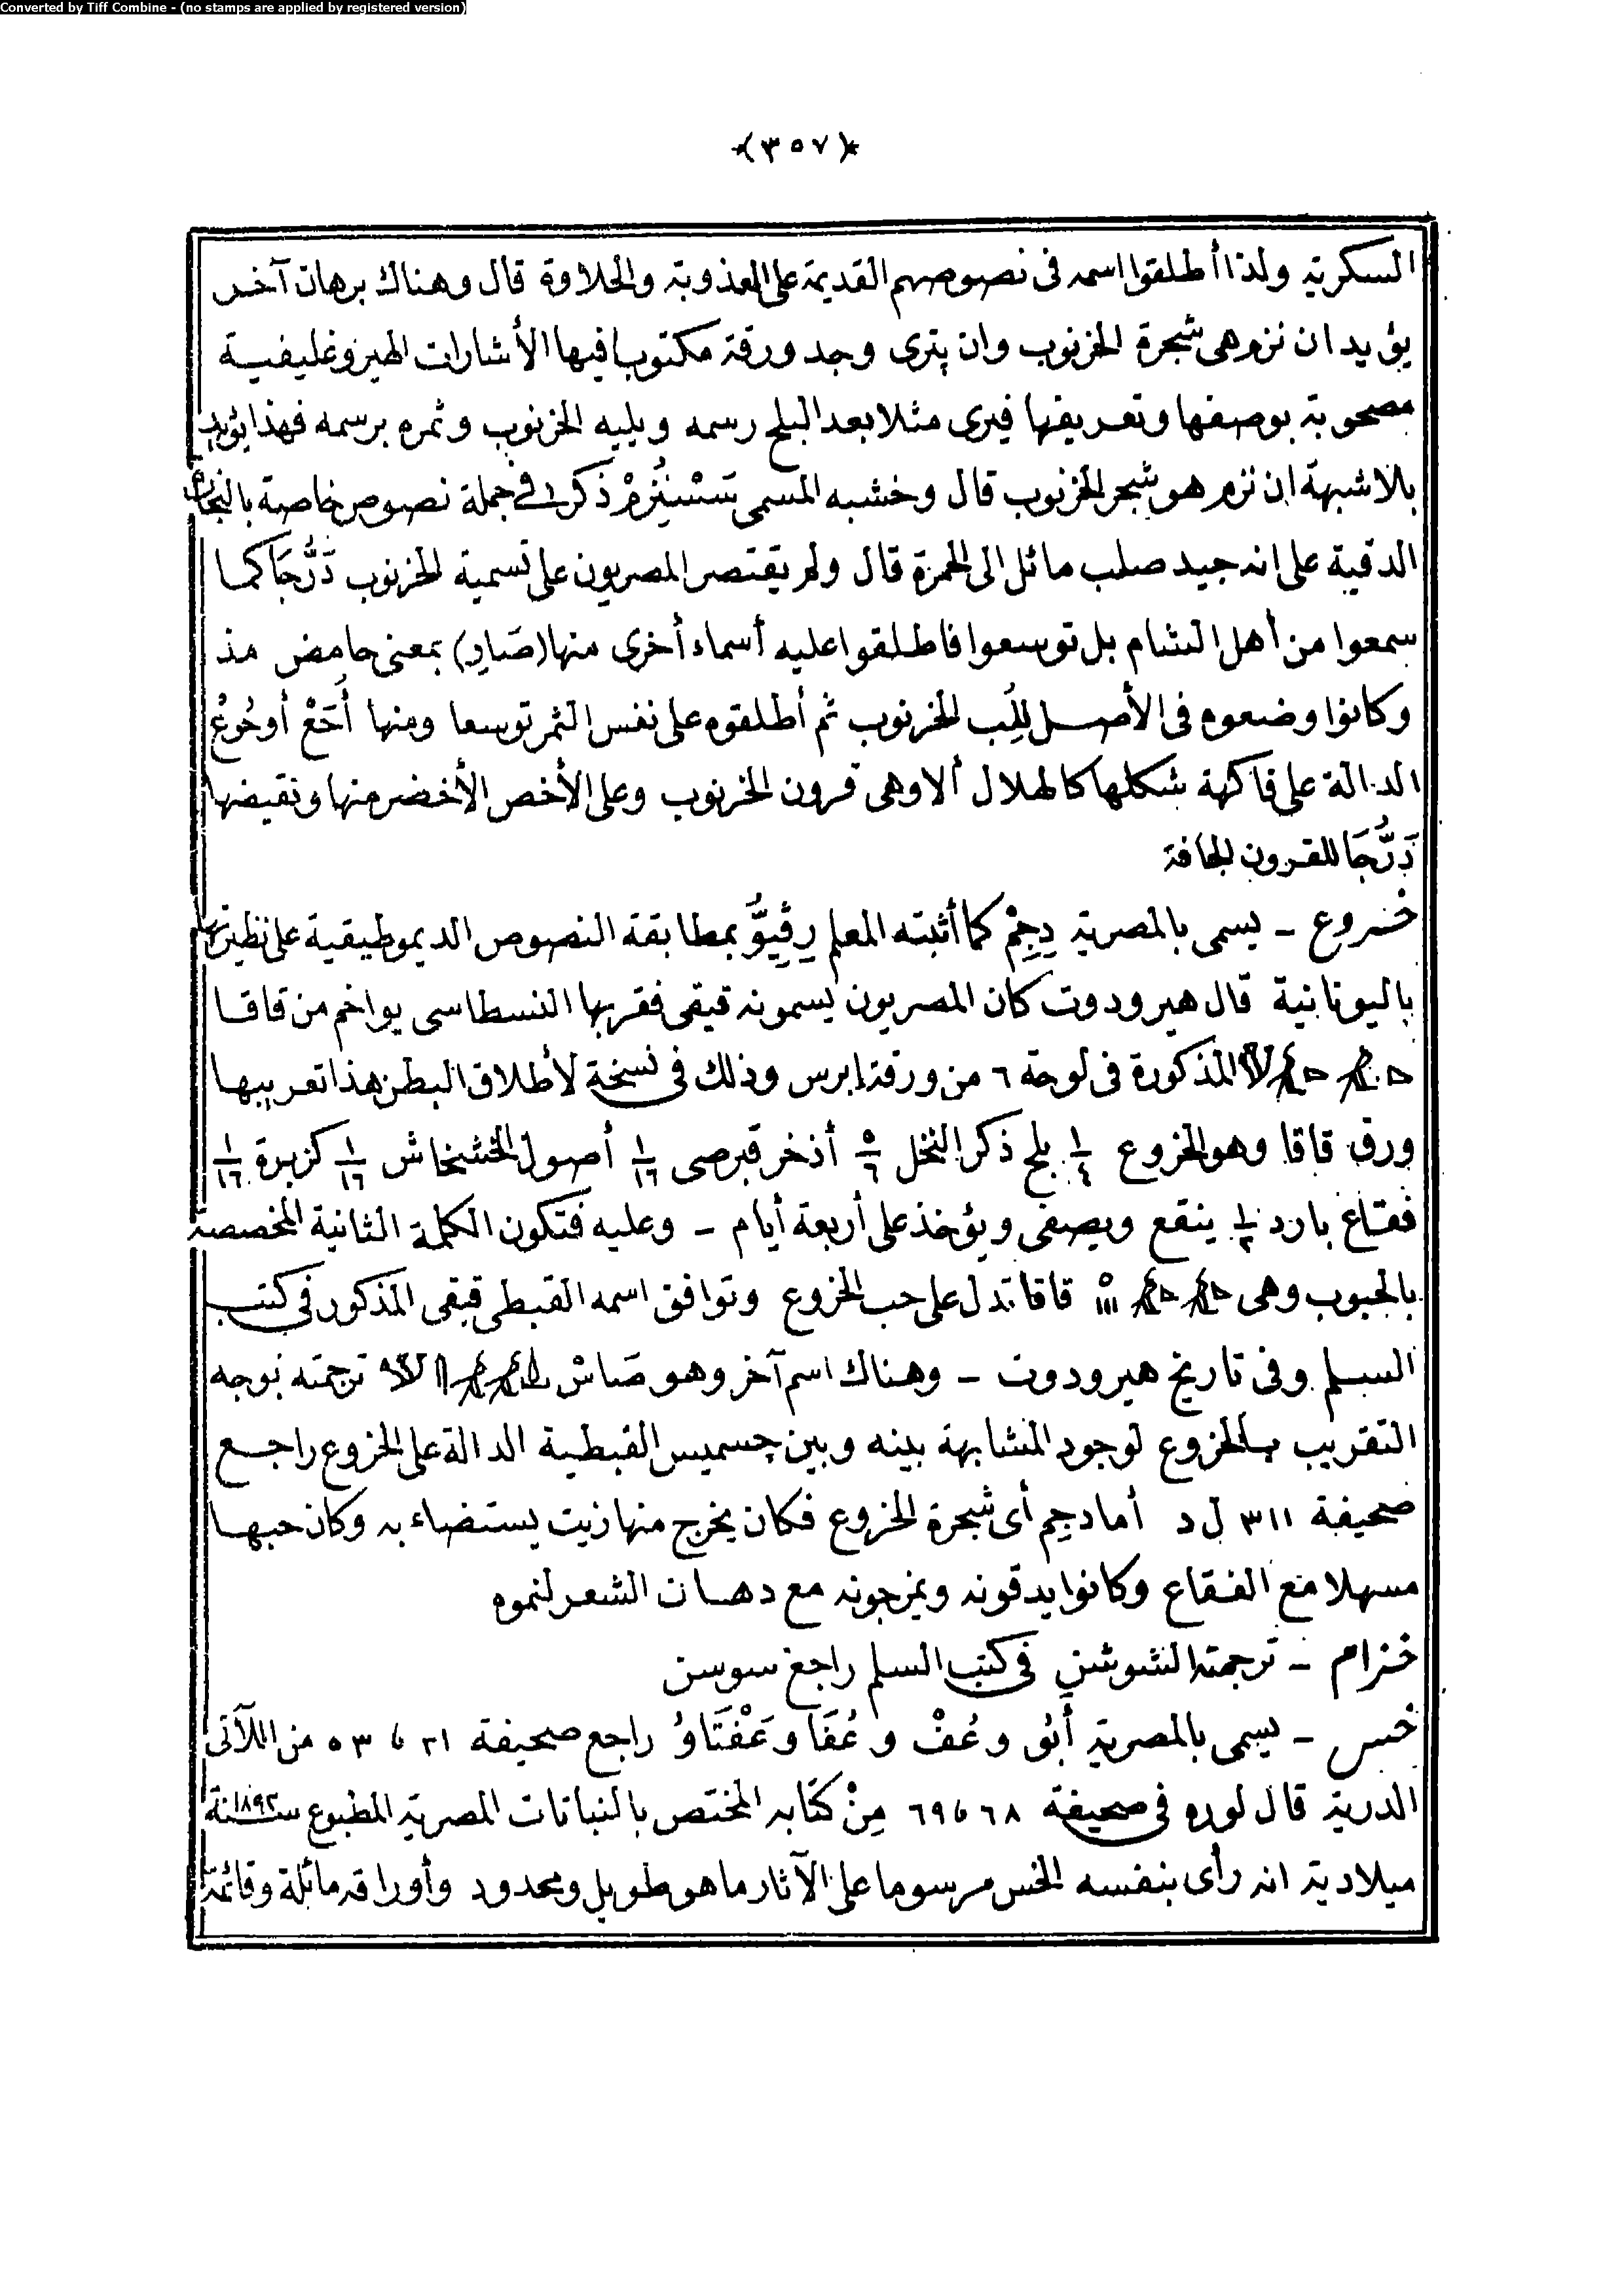 Converted by Tiff Combine - (no stamps are applied by registered version)
﴿٣٥٧﴾
السكرية ولذا أطلقوا اسمه فى نصوصهم القديمة على العذوبة والحلاوة قال وهناك برهان آخر
يؤيد ان نزم هى شجرة الخرنوب وان پترى وجد ورقة مكتوبا فيها الأشارات الهيروغليفية
مصحوبة بوصفها وتعريفها فيرى مثلا بعد البلح رسمه ويليه الخرنوب وثمره برسمه فهذا يؤيد
بلاشبهة ان نزم هو شجر الخرنوب قال وخشبه المسمى سَسْنِنُزمْ ذكر فى جملة نصوص خاصة بالنجارة
الدقية على انه جيد صلب مائل الى الحمرة قال ولم يقتصر المصريون على تسمية الخرنوب دَرُّجَا كما
سمعوا من أهل الشام بل توسعوا فاطلقوا عليه أسماء أخرى منها (صَارِ) بمعنى حامض مذ
وكانوا وضعوه فى الأصل للُب الخرنوب ثم أطلقوه على نفس الثمر توسعا ومنها أَحَعْ أوحُوعْ
الدالة على فاكهة شكلها كالهلال ألا وهى قرون الخرنوب وعلى الأخص الأخضر منها ونقيضها
دَرُّجَا للقرون الجافة
خروع – يسمى بالمصرية دِجِمْ كما أثبته المعلم رِڤِيُّو بمطابقة النصوص الديموطيقية على نظيرتها
باليونانية قال هيرودوت كان المصريون يسمونه قيقى فقربها النسطاسى يواخم من قاقا
المذكورة فى لوحة ٦ من ورقة إبرس وذلك فى نسخة لأطلاق البطن هذا تعريبها
ورق قاقا وهو الخروع ١/٤ بلح ذكر النخل ٥/٦ أذخر قبرصى ١/١٦ أصول الخشخاش ١/١٦ كزبرة ١/١٦
فقاع بارد ١/٢ ينقع ويصفى ويؤخذ على أربعة أيام – وعليه فتكون الكلمة الثانية المخصصة
بالحبوب وهى قاقا تدل على حب الخروع وتوافق اسمه القبطى قيقى المذكور فى كتب
السلم وفى تاريخ هيرودوت – وهناك اسم آخر وهو صَاسْ ترجمته بوجه
التقريب بالخروع لوجود المشابهة بينه وبين چسميس القبطية الدالة على الخروع راجع
صحيفة ٣١١ ل د أما دجم أى شجرة الخروع فكان يخرج منها زيت يستضاء به وكان حبها
مسهلا مع الفقاع وكانوا يدقونه ويمزجونه مع دهان الشعر لنموه
خزام – ترجمته الشوشن فى كتب السلم راجع سوسن
خس – يسمى بالمصرية أَبُو وعُفْ وعُفَا وعَفْتَاوُ راجع صحيفة ٢١ ، ٥٣ من اللآلئ
الدرية قال لوره فى صحيفة ٦٨ ، ٦٩ مِنْ كتابه المختص بالنباتات المصرية المطبوع سنة ١٨٩٢
ميلادية انه رأى بنفسه الخس مرسوما على الآثار ما هو طويل ومحدود وأوراقه مائلة وقائمة